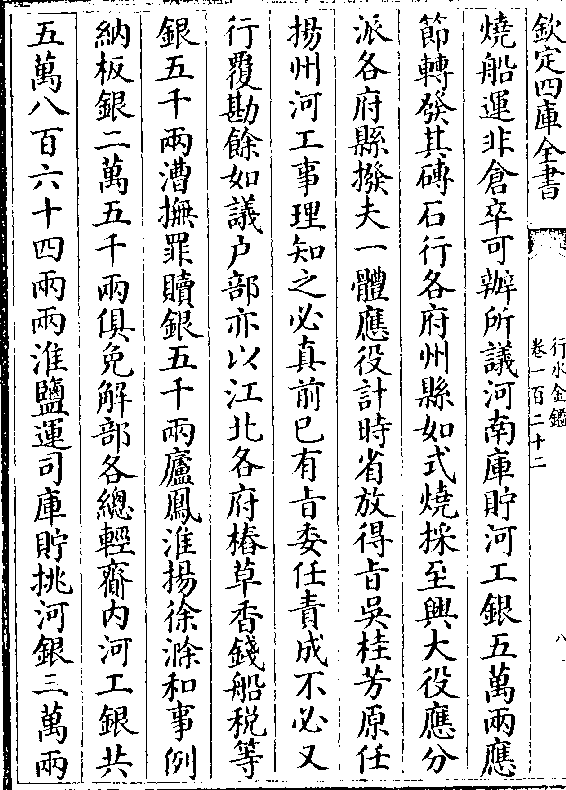 欽定四庫全書
行水金鑑
卷一百二十二
八
燒船運非倉卒可辦所議河南庫貯河工銀五萬兩應
節轉發其磚石行各府州縣如式燒採至興大役應分
派各府縣撥夫一體應役計時省放得旨吳桂芳原任
揚州河工事理知之必真前已有旨委任責成不必又
行覆勘餘如議户部亦以江北各府樁草香錢船税等
銀五千兩漕撫罪贖銀五千兩廬鳳淮揚徐滁和事例
納板銀二萬五千兩俱免解部各總輕齎内河工銀共
五萬八百六十四兩兩淮鹽運司庫貯挑河銀三萬兩